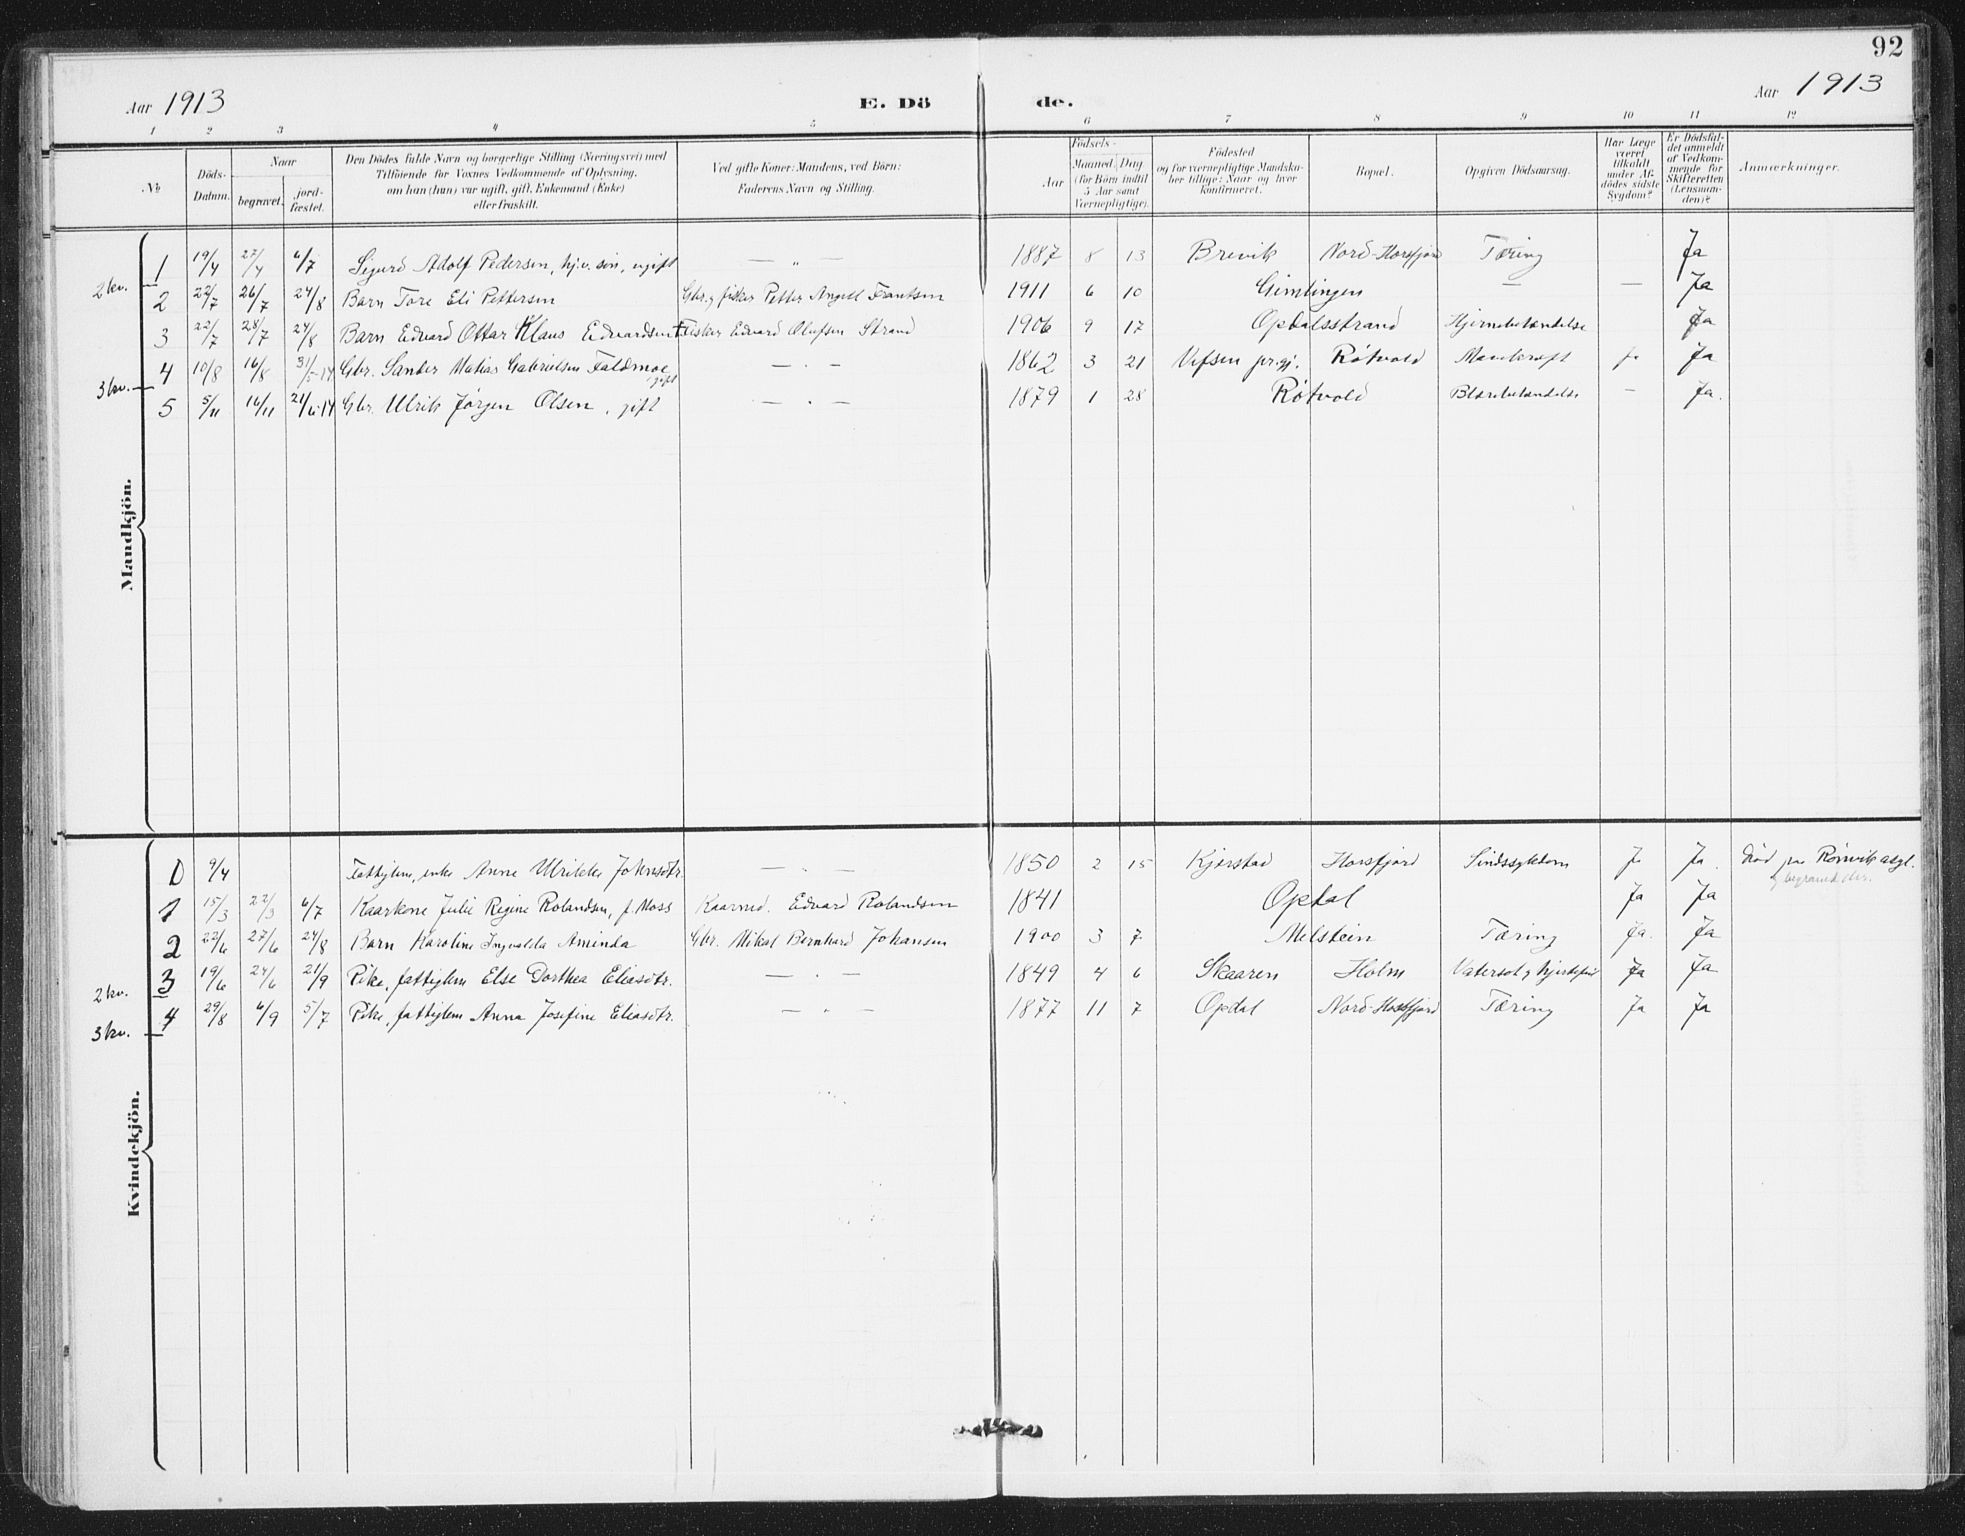 92
Aar 1913 E. Dö de. Aar 1913
1 2 3 4 5 6 7 8 9 10 11 12
No
Döds-Datum.
Naar
begravet.
jord-fæstet.
Den Dödes fulde Navn og borgerlige Stilling (Næringsvei) med
Tilföiende for Voxnes Vedkommende af Oplysning,
om han (hun) var ugift, gift, Enkemand (Enke)
eller fraskilt.
Ved gifte Koner: Mandens, ved Börn:
Faderens Navn og Stilling.
Födsels-
Aar
Maaned. Dag
(for Börn indtil
5 Aar samt
Værnepligtige).
Födested
og for værnepligtige Mandska-
ber tillige: Naar og hvor
konfirmeret.
Bopæl.
Opgiven Dödsaarsag.
Har Læge
været
tilkaldt
under Af-
dödes sidste
Sygdom?
Er Dödsfal-
det anmeldt
af Vedkom-
mende for
Skifteretten
(Lensman-
den)?
Anmærkninger.
Mandkjön.
1 19/4 27/4 6/7 Sigurd Adolf Pedersen, hj.v. søn, ugift — „ — 1887 8 13 Brevik Nord-Horsfjord Tæring Ja
2 kv.
2 22/7 26/7 24/8 Barn Tore Eli Pettersen Gbr. og fisker Petter Angell Frantsen 1911 6 10 Gimlingen — — Ja
3 22/7 28/7 24/8 Barn Edvard Ottar Klaus Edvardsen Fisker Edvard Olufsen Strand 1906 9 17 Opdalsstrand Hjernebetændelse Ja
4 10/8 16/8 31/5-14 Gbr. Sander Matias Gabrielsen Faldmoe, gift — „ — 1862 3 21 Vefsen pr.gj. Røtvold Mavekræft Ja Ja
3 kv.
5 5/11 16/11 21/6-14 Gbr. Ulrik Jørgen Olsen, gift — „ — 1879 1 28 Røtvold Blærebetændelse — Ja.
Kvindekjön.
D 9/4 Fattiglem, enke Anne Ulrikke Johnsdtr. — „ — 1850 2 15 Kjørstad Horsfjord Sindssygdom Ja Ja. Død paa Rønvik asyl.
og begravet der.
1 15/3 22/3 6/7 Kaarkone Julie Regine Rolandsen, f. Moss Kaarmd. Edvard Rolandsen 1841 Opdal Ja Ja
2 22/6 27/6 24/8 Barn Karoline Ingvalda Aminda Gbr. Mikal Bernhard Johansen 1900 3 7 Melstein Tæring Ja. Ja
2 kv.
3 19/6 24/6 21/9 Pike, fattiglem Else Dorthea Eliasdtr. — „ — 1849 4 6 Skaaren Holm Vatersot og Ja Ja
4 29/8 6/9 5/7 Pike, fattiglem Anna Josefine Eliasdtr. — „ — 1877 11 7 Opdal Nord-Horsfjord Tæring Ja Ja
3 kv.